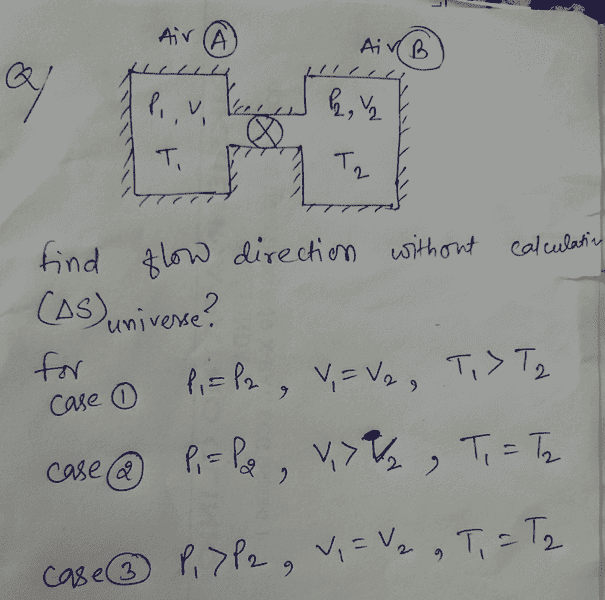 Air Ⓐ
Air Ⓑ
Q/
P₁, V₁
P₂, V₂
T₁
T₂
find flow direction without calculatin
(ΔS)universe?
for
case ① P₁ = P₂ , V₁ = V₂ , T₁ > T₂
case ② P₁ = P₂ , V₁ > V₂ , T₁ = T₂
case ③ P₁ > P₂ , V₁ = V₂ , T₁ = T₂